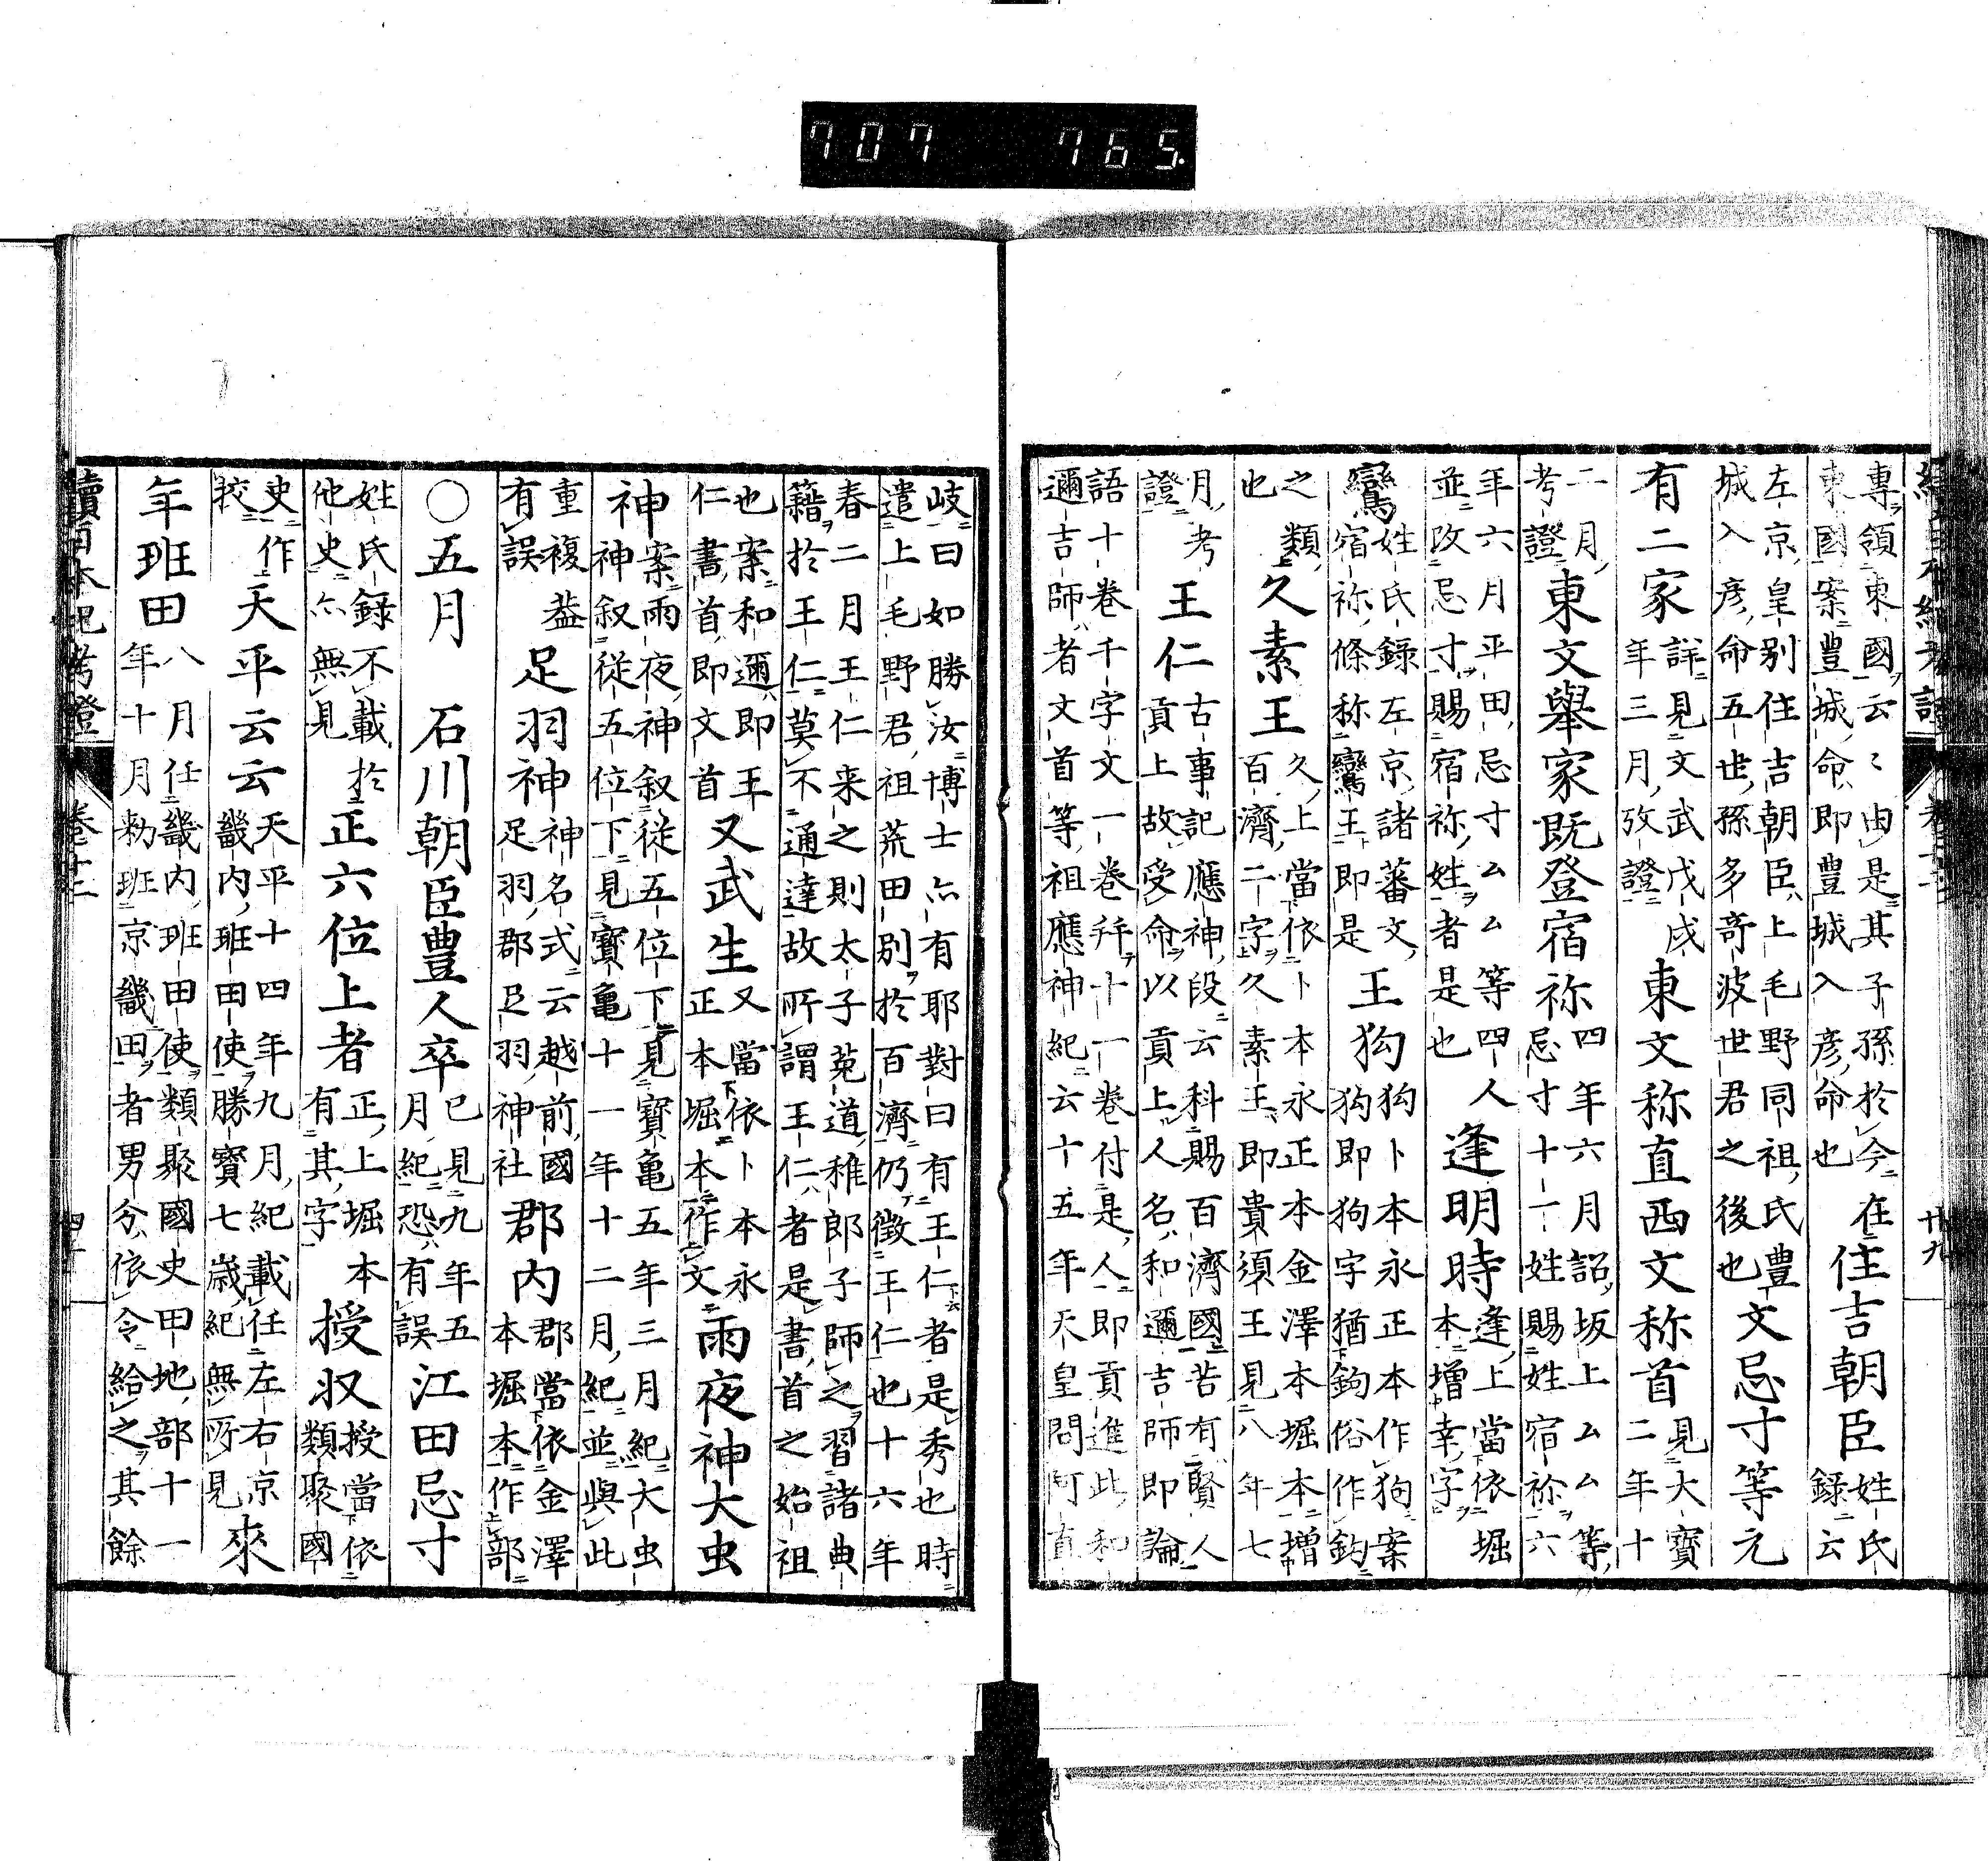 707 765.
專領東國云〻由是其子孫於今在
東國案豊城命即豊城入彦命也
住吉朝臣
姓氏
録云
左京皇別住吉朝臣上毛野同祖氏豊
城入彦命五世孫多奇波世君之後也
文忌寸等元
有二家
詳見文武戊戌
年三月攷證
東文称直西文称首
見大寶
二年十
二月
考證
東文舉家既登宿祢
四年六月詔坂上ムム等
忌寸十一姓賜姓宿祢六
年六月平田忌寸ムム等四人
並改忌寸賜宿祢姓者是也
逢明時
逢上當依堀
本増幸字
鸞
姓氏録左京諸蕃文
宿祢條称鸞王即是
王狗
狗卜本永正本作狗案
狗即狗字猶鉤俗作鈎
之類
也
久素王
久上當依卜本永正本金澤本堀本増
百濟二字久素王即貴須王見八年七
月考
證
王仁
古事記應神段云科賜百濟國苦有賢人
貢上故受命以貢上人名和邇吉師即論
語十卷千字文一卷幷十一卷付是人即貢進此和
邇吉師者文首等祖應神紀云十五年天皇問阿直
續日本紀考證 卷十二
岐曰如勝汝博士亦有耶對曰有王仁者是秀也時
遣上毛野君祖荒田別於百濟仍徴王仁也十六年
春二月王仁来之則太子菟道稚郎子師之習諸典
籍於王仁莫不通達故所謂王仁者是書首之始祖
也案和邇即王
仁書首即文首
又武生
又當依卜本永
正本堀本作文
雨夜神大虫
神
案雨夜神叙従五位下見寶亀五年三月紀大虫
神叙従五位下見寶亀十一年十二月紀並與此
重複蓋
有誤
足羽神
神名式云越前國
足羽郡足羽神社
郡内
郡當依金澤
本堀本作部
〇五月
石川朝臣豊人卒
已見九年五
月紀恐有誤
江田忌寸
姓氏録不載於
他史亦無見
正六位上者
正上堀本
有其字
授収
授當依
類聚國
史作
校
天平云云
天平十四年九月紀載任左右京
畿内班田使勝寶七歳紀無所見
來
年班田
八月任畿内班田使類聚國史田地部十一
年十月勅班京畿田者男分依令給之其餘
續日本紀考證 卷十二